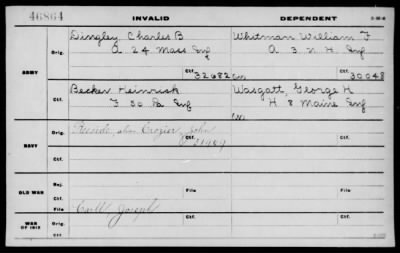 46864 INVALID DEPENDENT
Dingley Charles B Whitman William F
Orig. A 24 Mass Inf A 3 N. H. Inf
ARMY Ctf. 32682 30048
Becker Heinrich Wasgatt, George H
Ctf. F 50 Pa Inf H 8 Maine Inf
Orig. alias Crozier, John Ctf.
NAVY 21989
Ctf. Orig. Ctf.
Rej.
OLD WAR File File
Ctf.
Orig. Carll, Joseph Ctf.
WAR OF 1812
Ctf. File